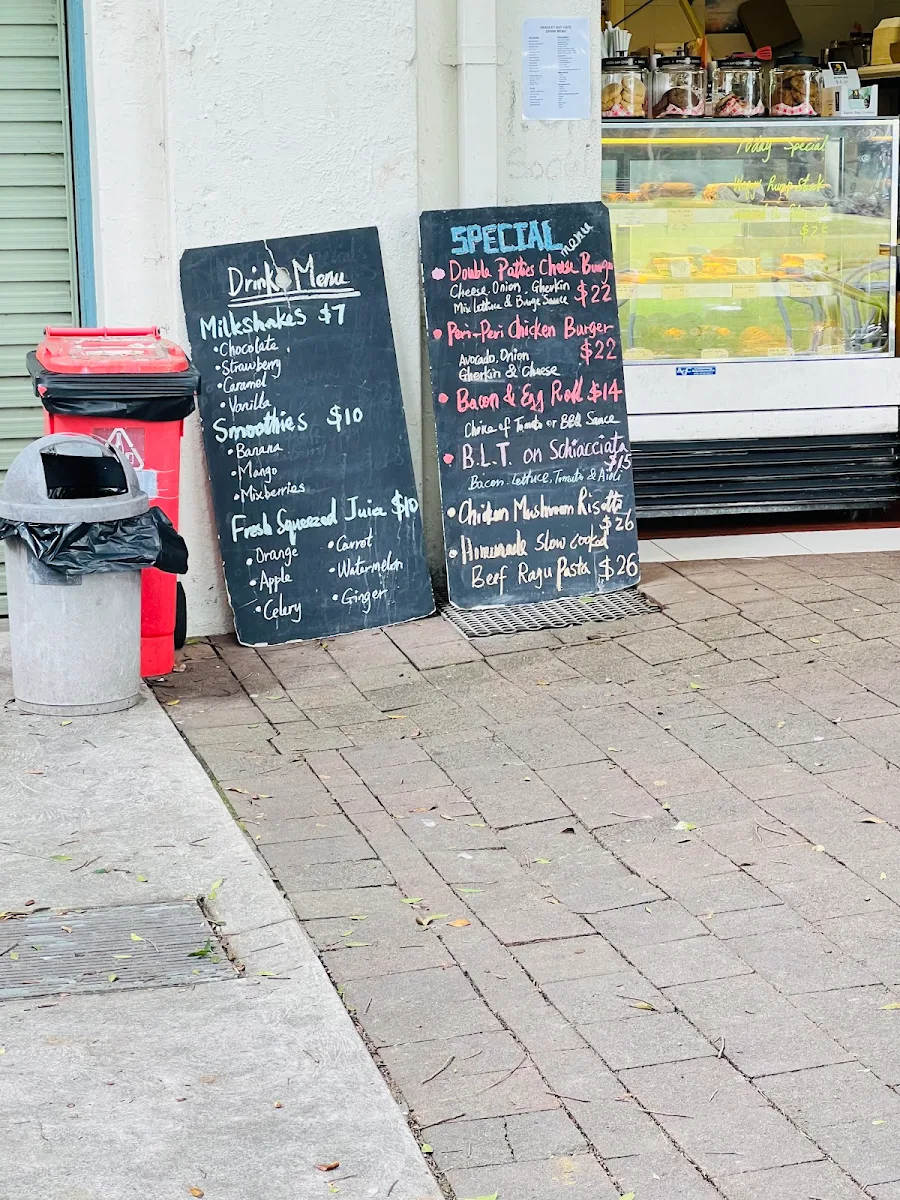 Drink Menu
Milkshakes $7
• Chocolate
• Strawberry
• Caramel
• Vanilla
Smoothies $10
• Banana
• Mango
• Mixberries
Fresh Squeezed Juice $10
• Orange
• Apple
• Celery
• Carrot
• Watermelon
• Ginger
SPECIAL menu
• Double Patties Cheese Burger
Cheese, Onion, Gherkin
Mix Lettuce & Burge Sauce $22
• Peri-Peri Chicken Burger
$22
Avocado, Onion
Gherkin & Cheese
• Bacon & Egg Roll $14
Choice of Tomato or BBQ Sauce
• B.L.T. on Schiacciata
$15
Bacon, Lettuce, Tomato & Aioli
• Chicken Mushroom Risotto
$26
• Homemade Slow cooked
Beef Ragu Pasta $26
Today Special